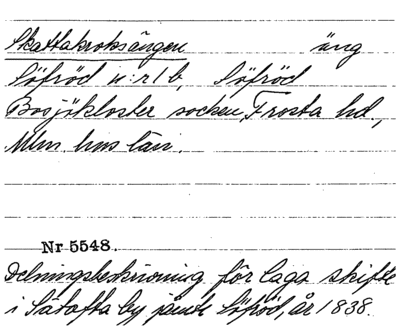 Skattakroksängen äng
Söfröd n:r 1 b, Söfröd
Bosjökloster socken, Frosta hd.,
Mlm hus län.
Nr 5548.
Delningsbeskrivning för laga skifte
i Sätofta by jämte Söfröd, år 1838.